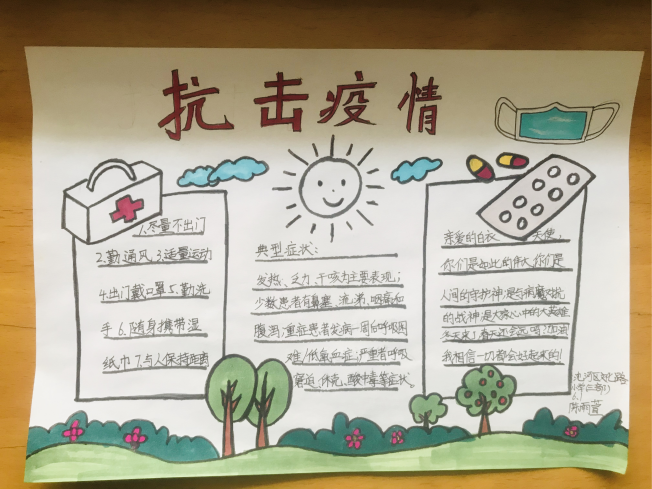 抗击疫情
1.尽量不出门
2.勤通风3.适量运动
4.出门戴口罩5.勤洗
手6.随身携带湿
纸巾7.与人保持距离
典型症状:
发热、乏力、干咳为主要表现;
少数患者有鼻塞、流涕、咽痛和
腹泻;重症患者发病一周后呼吸困
难/低氧血症;严重者呼吸
窘迫、休克、酸中毒等症状。
亲爱的白衣天使,
你们是如此的伟大,你们是
人间的守护神,是与病魔对抗
的战神,是大家心中的大英雄
冬天来了,春天还会远吗?加油
我相信一切都会好起来的!
沈河区文化路
小学
陈雨萱